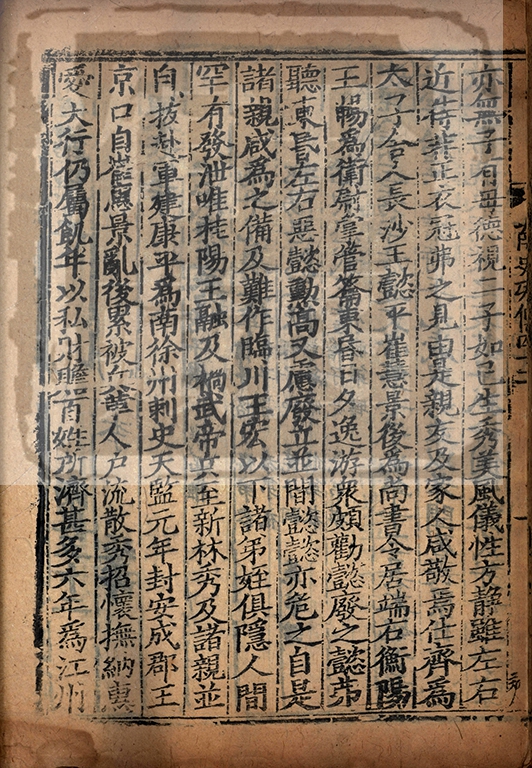 亦無子有母德視二子如己生秀美風儀性方静雖左右
近侍非正衣冠弗之見由是親友及家人咸敬焉仕齊為
太子舍人長沙王懿平崔慧景後為尚書令居端右衡陽
王暢為衛尉掌管籥東昏日夕逸游衆頗勸懿廢之懿弗
聽東昏左右惡懿勳高又慮廢立並間懿懿亦危之自是
諸親咸為之備及難作臨川王宏以下諸弟姪俱隱人間
罕有發泄唯桂陽王融及禍武帝兵至新林秀及諸親並
自拔赴軍建康平為南徐州刺史天監元年封安成郡王
京口自崔慧景亂後累被兵革人户流散秀招懷撫納惠
愛大行仍屬飢年以私財贍百姓所濟甚多六年為江州